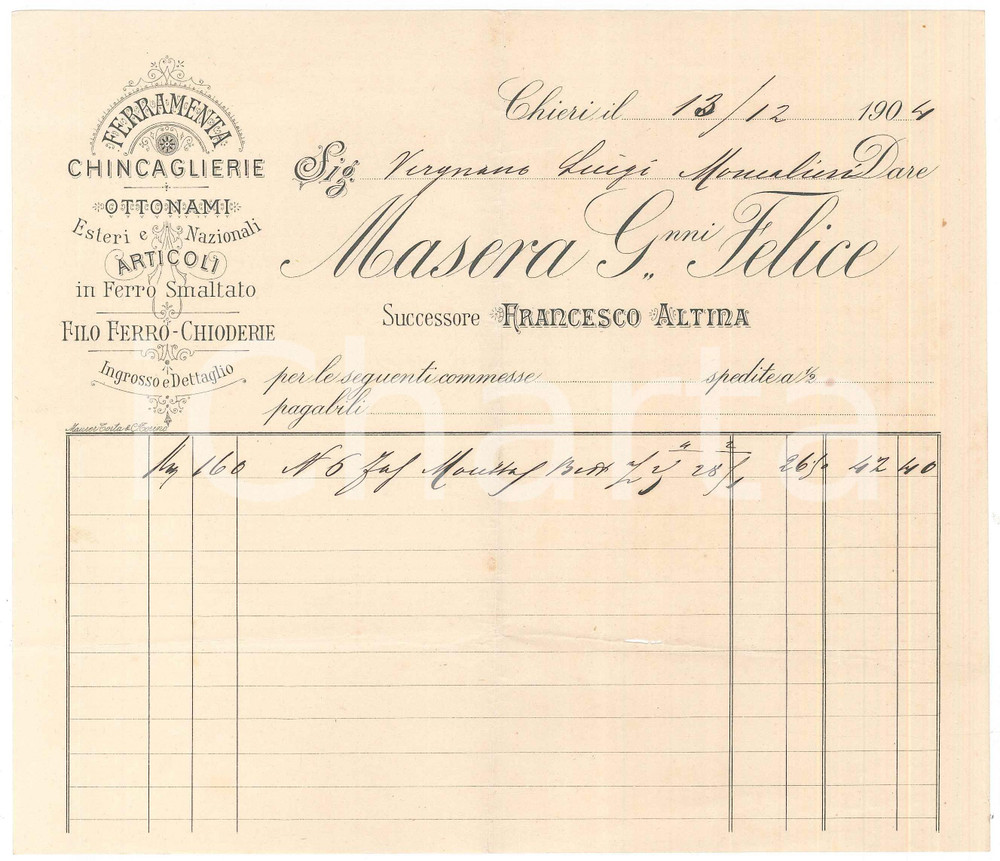 FERRAMENTA
CHINCAGLIERIE
OTTONAMI
Esteri e Nazionali
ARTICOLI
in Ferro Smaltato
FILO FERRO-CHIODERIE
Ingrosso e Dettaglio
Chieri, il 13/12 1904
Sig. Vergnano Luigi Moncalieri Dare
Masera G.nni Felice
Successore FRANCESCO ALTINA
per le seguenti commesse spedite a 1/2
pagabili
160 N 6 26 50 42 40
iCharta